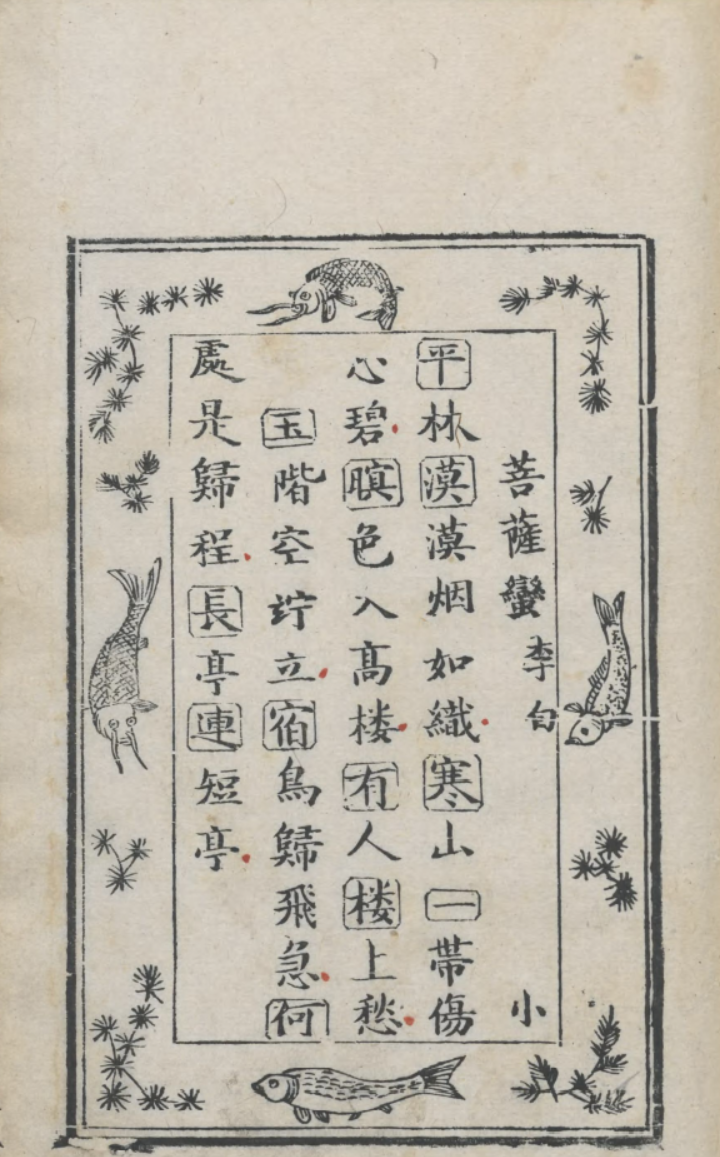 菩薩蠻 李白 小
平林漠漠烟如織寒山一帶傷
心碧暝色入高楼有人楼上愁
玉階空竚立宿鳥歸飛急何
處是歸程長亭連短亭